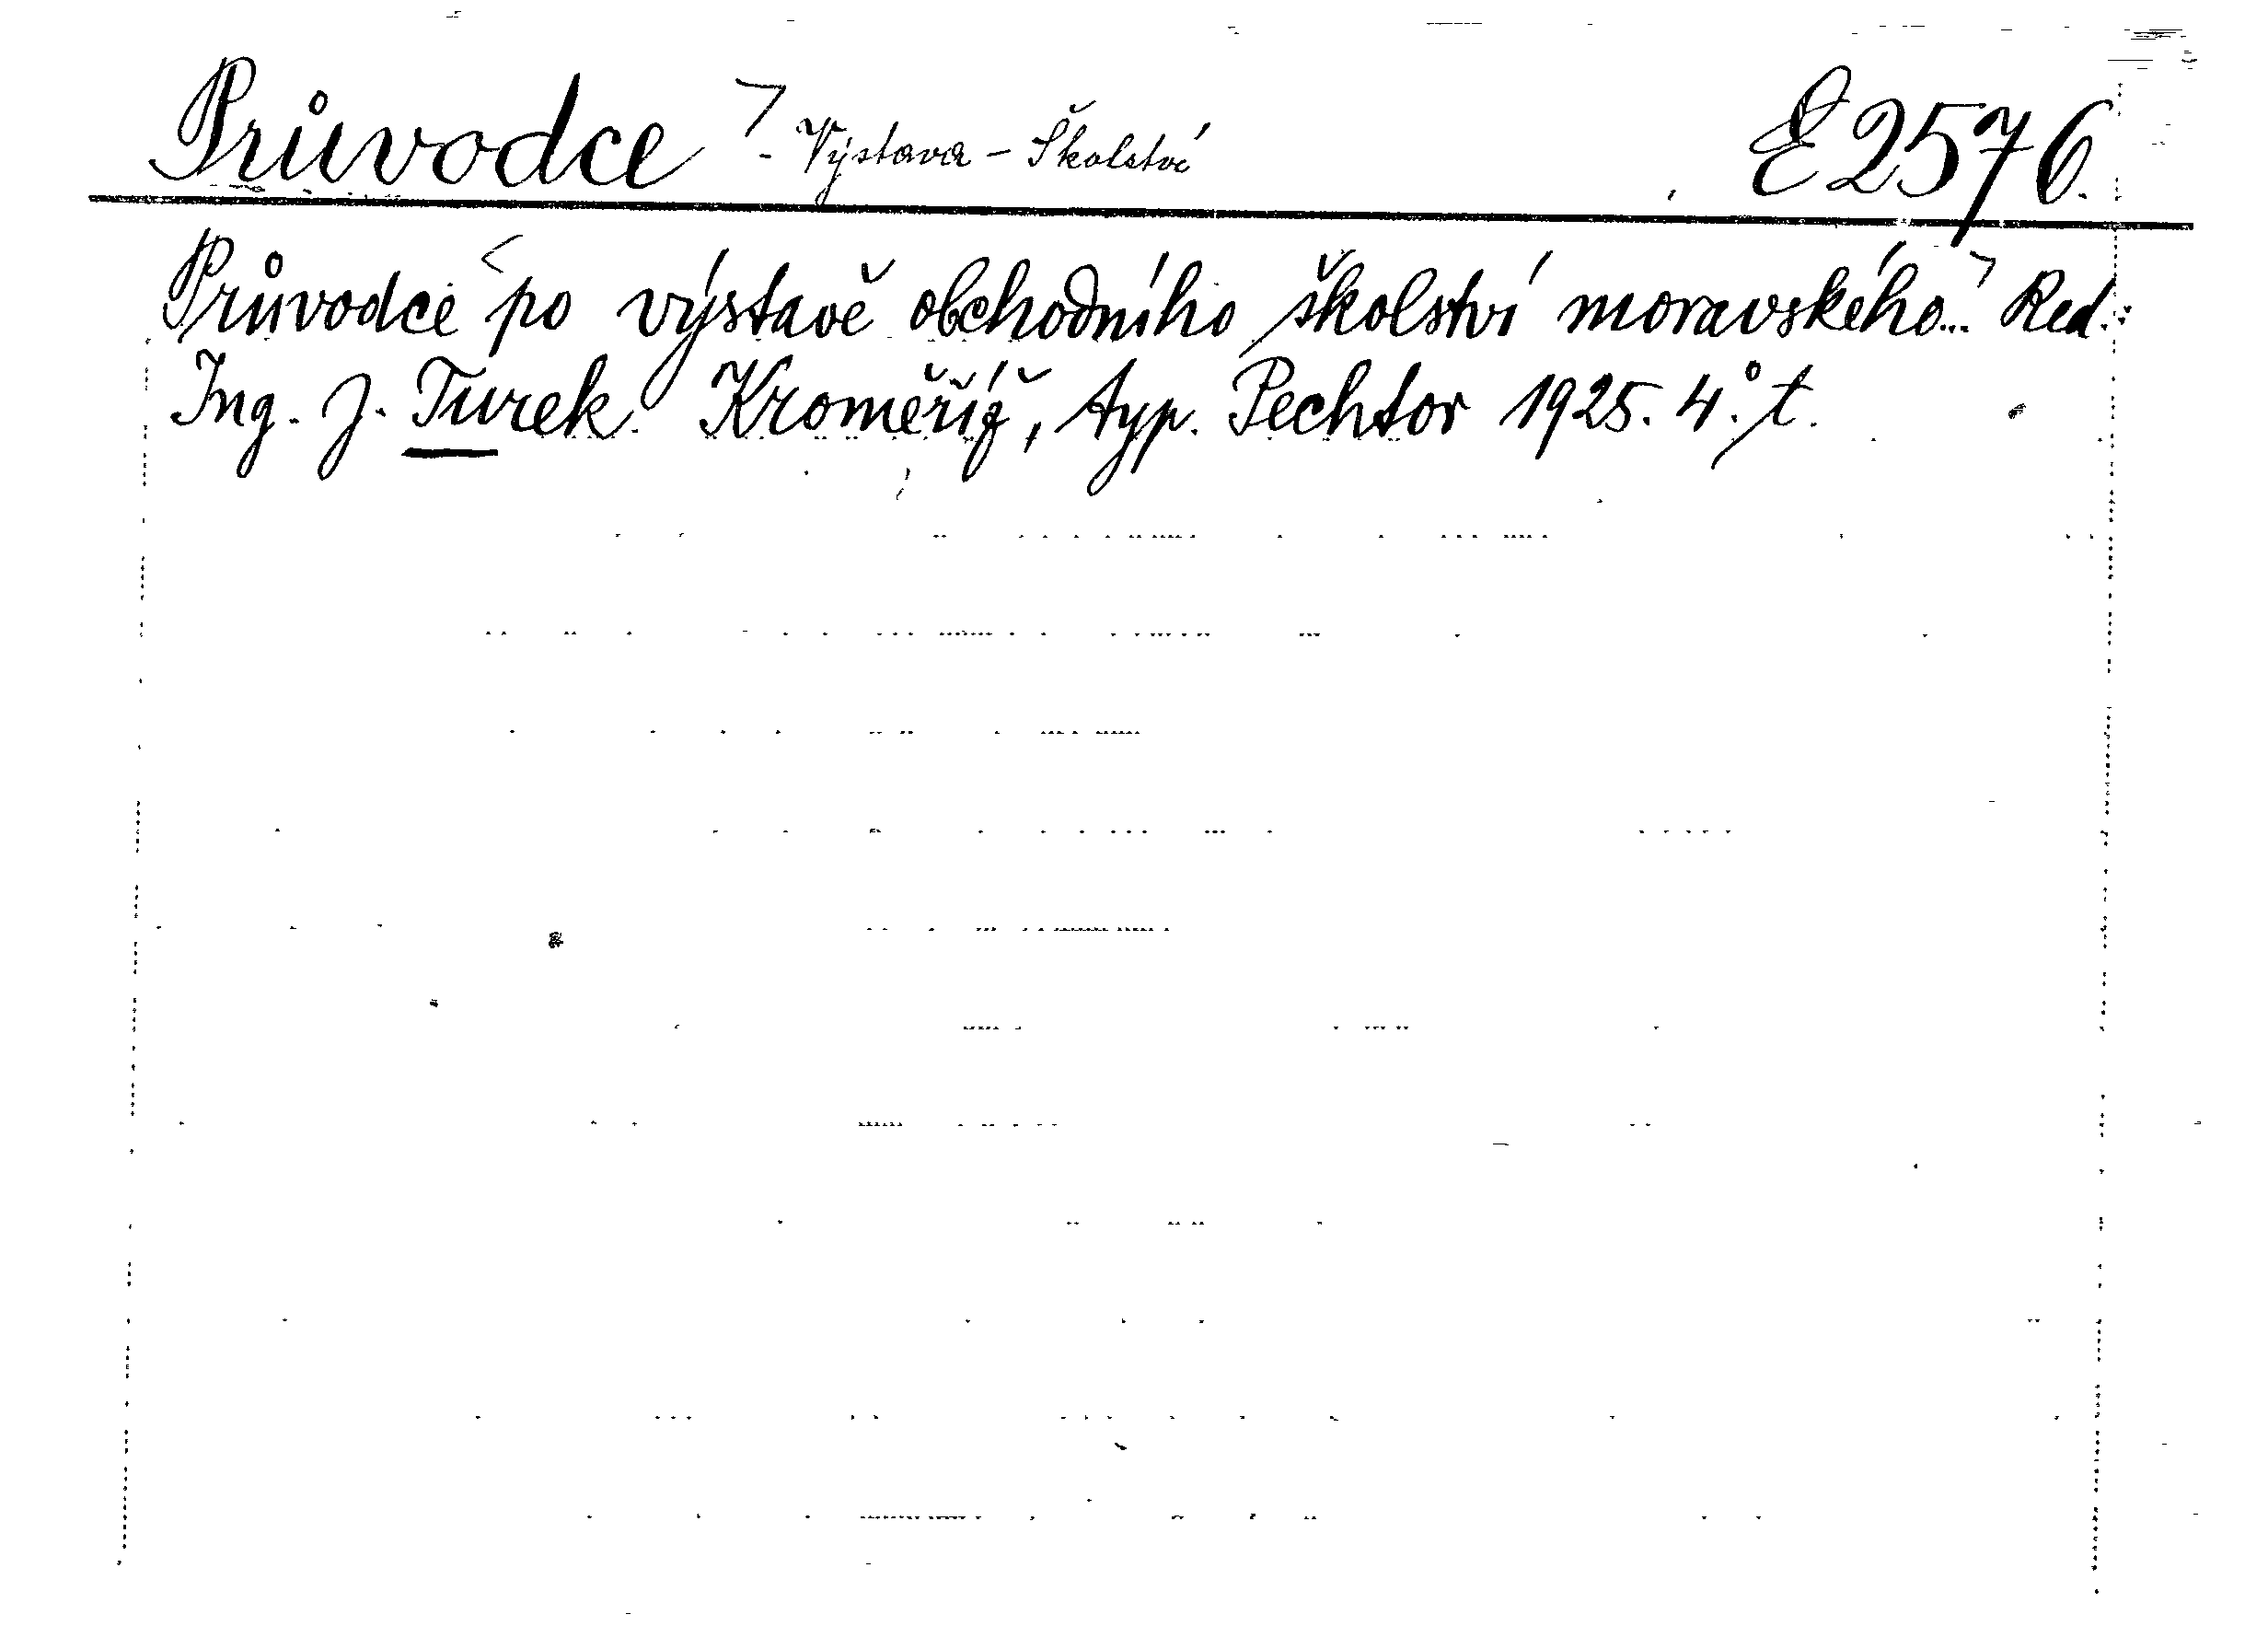 Průvodce - Výstava - Školství E 2576.
Průvodce po výstavě obchodního školství moravského... Red.:
Ing. J. Turek. Kroměříž, typ. Pechtor 1925. 4°. t.